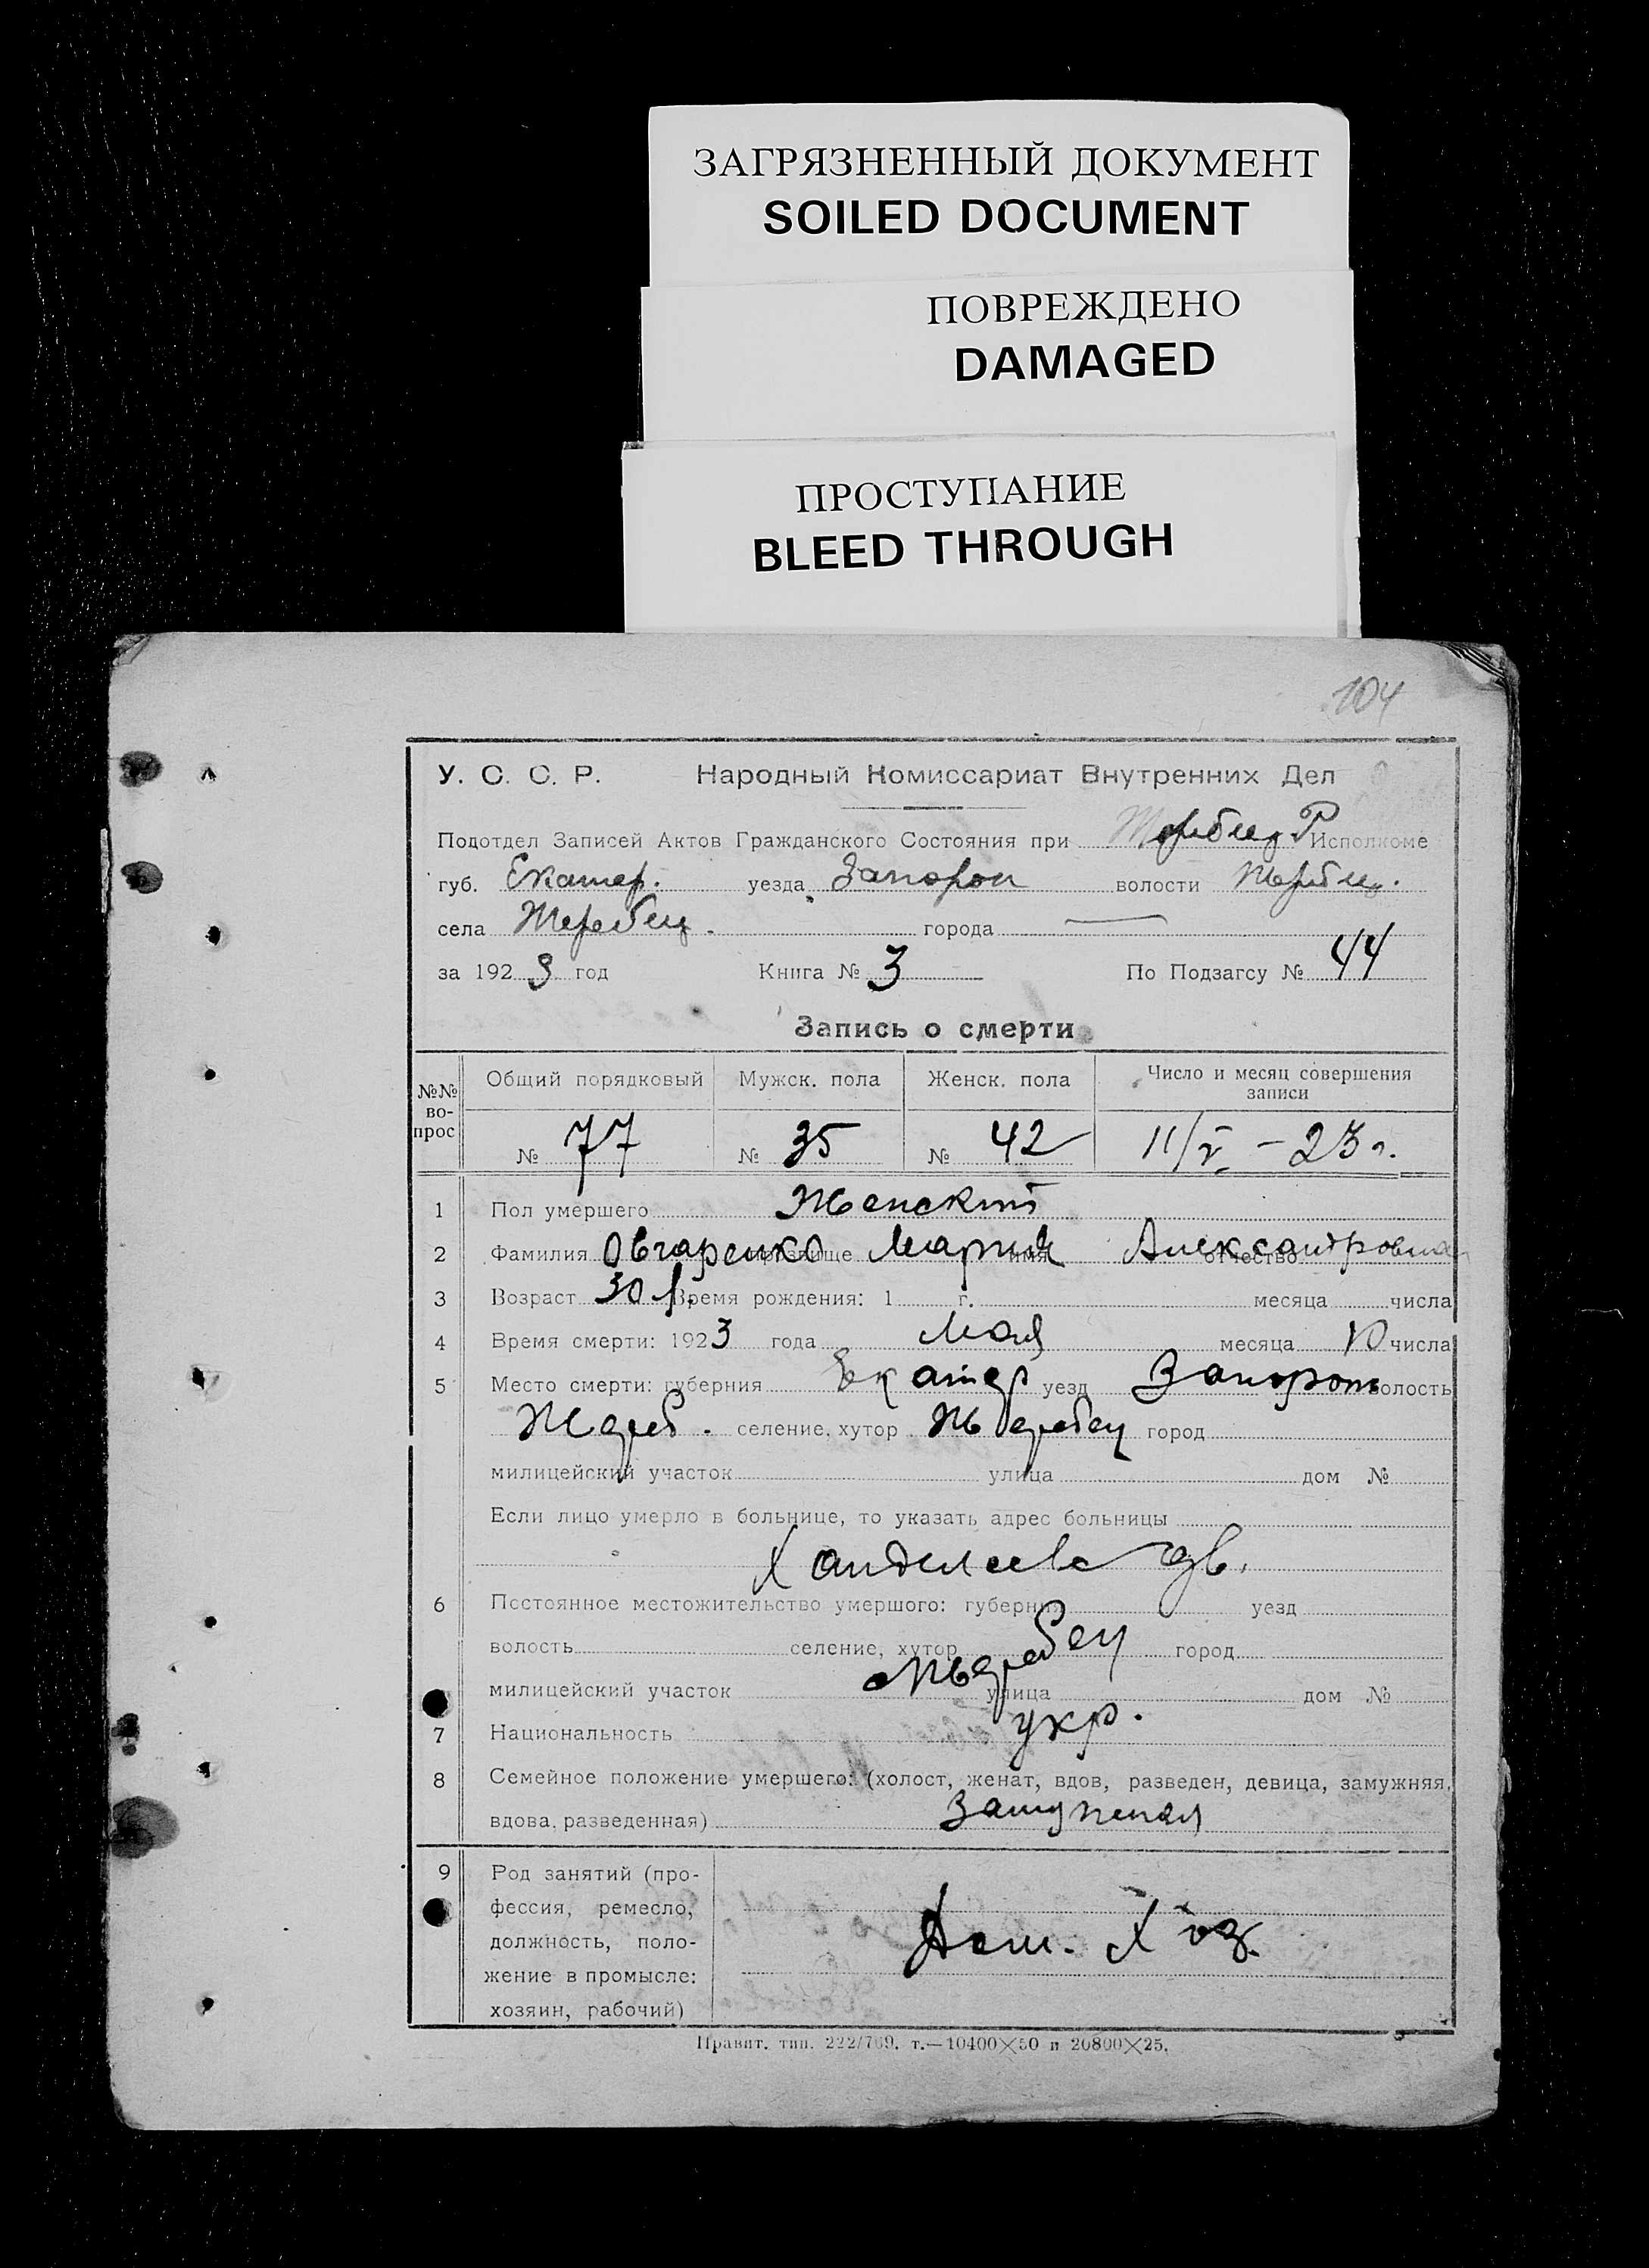 ЗАГРЯЗНЕННЫЙ ДОКУМЕНТ
SOILED DOCUMENT
ПОВРЕЖДЕНО
DAMAGED
ПРОСТУПАНИЕ
BLEED THROUGH
104
У. С. С. Р. Народный Комиссариат Внутренних Дел
Подотдел Записей Актов Гражданского Состояния при Жеребец. Р Исполкоме
губ. Екатер. уезда Запорож волости Жеребец.
села Жеребец. города —
за 1923 год Книга № 3 По Подзагсу № 44
Запись о смерти
№№ вопрос Общий порядковый Мужск. пола Женск. пола Число и месяц совершения записи
№ 77 № 35 № 42 11/V – 23 г.
1 Пол умершего Женский
2 Фамилия Овчаренко прозвище Мария имя Александровна отчество
3 Возраст 30 л. Время рождения: 1 г. месяца числа
4 Время смерти: 1923 года Мая месяца 10 числа
5 Место смерти: губерния Екатер уезд Запорож волость
Жереб. селение, хутор Жеребец город
милицейский участок улица дом №
Если лицо умерло в больнице, то указать адрес больницы
6 Постоянное местожительство умершого: губерния уезд
волость селение, хутор Жеребец город
милицейский участок улица дом №
7 Национальность укр.
8 Семейное положение умершего: (холост, женат, вдов, разведен, девица, замужняя,
вдова, разведенная) Замужняя
9 Род занятий (про-
фессия, ремесло,
должность, поло-
жение в промысле:
хозяин, рабочий)
Дом. Хоз.
Правит. тип. 222/769. т.—10400×50 и 20800×25.